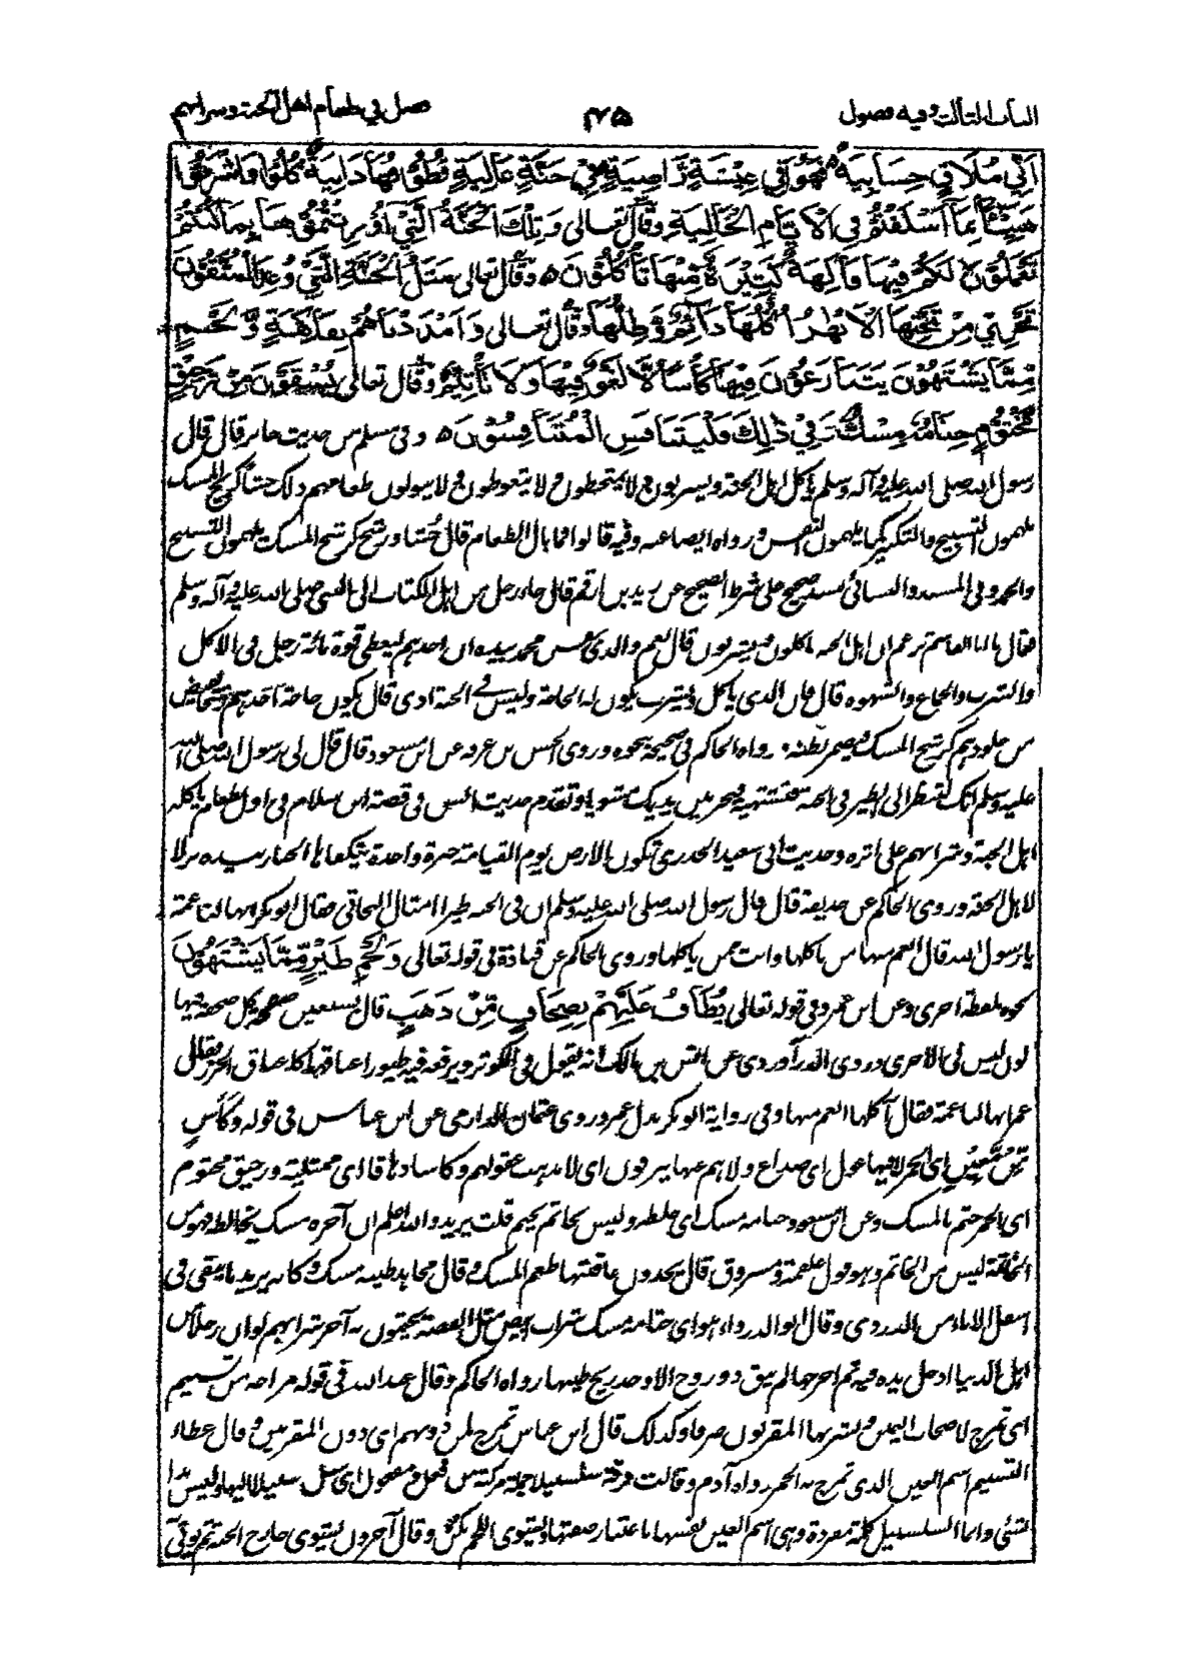 الباب الثالث وفيه فصول ٢٧٥ فصل في طعام اهل الجنة وشرابهم
اَنِّي مُلَاقٍ حِسَابِيَهْ فَهُوَ فِي عِيْشَةٍ رَّاضِيَةٍ فِيْ جَنَّةٍ عَالِيَةٍ قُطُوْفُهَا دَانِيَةٌ كُلُوْا وَاشْرَبُوْا
هَنِيْئًا بِمَا اَسْلَفْتُمْ فِي الْاَيَّامِ الْخَالِيَةِ وقال تعالى وَتِلْكَ الْجَنَّةُ الَّتِيْ اُوْرِثْتُمُوْهَا بِمَا كُنْتُمْ
تَعْمَلُوْنَ لَكُمْ فِيْهَا فَاكِهَةٌ كَثِيْرَةٌ مِّنْهَا تَأْكُلُوْنَ ه وقال تعالى مَثَلُ الْجَنَّةِ الَّتِيْ وُعِدَ الْمُتَّقُوْنَ
تَجْرِيْ مِنْ تَحْتِهَا الْاَنْهٰرُ اُكُلُهَا دَآئِمٌ وَّظِلُّهَا وقال تعالى وَاَمْدَدْنَاهُمْ بِفَاكِهَةٍ وَّلَحْمٍ
مِّمَّا يَشْتَهُوْنَ يَتَنَازَعُوْنَ فِيْهَا كَأْسًا لَّا لَغْوٌ فِيْهَا وَلَا تَأْثِيْمٌ وقال تعالى يُسْقَوْنَ مِنْ رَّحِيْقٍ
مَّخْتُوْمٍ خِتَامُهُ مِسْكٌ وَفِيْ ذٰلِكَ فَلْيَتَنَافَسِ الْمُتَنَافِسُوْنَ ه وفي مسلم من حديث جابر قال قال
رسول الله صلى الله عليه وآله وسلم يأكل اهل الجنة ويشربون ولا يمتخطون ولا يتغوطون ولا يبولون طعامهم ذلك جشأ كريح المسك
يلهمون التسبيح والتكبير كما يلهمون النفس ورواه ايضا عنه وفيه قالوا فما بال الطعام قال جشاء ورشح كرشح المسك يلهمون التسبيح
والحمد وفي المسند والنسائي بسند صحيح على شرط الصحيح عن زيد بن ارقم قال جاء رجل من اهل الكتاب الى النبي صلى الله عليه وآله وسلم
فقال يا ابا القاسم تزعم ان اهل الجنة يأكلون ويشربون قال نعم والذي نفس محمد بيده ان احدهم ليعطى قوة مائة رجل في الاكل
والشرب والجماع والشهوة قال فان الذي يأكل ويشرب يكون له الحاجة وليس في الجنة اذى قال يكون حاجة احدهم رشحا يفيض
من جلودهم كرشح المسك فيضمر بطنه رواه الحاكم في صحيحه بنحوه وروى الحسن بن عرفة عن ابن مسعود قال قال لي رسول الله صلى الله
عليه وسلم انك لتنظر الى الطير في الجنة فتشتهيه فيخر بين يديك مشويا وتقدم حديث انس في قصة ابن سلام في اول طعام يأكله
اهل الجنة وشرابهم على اثره وحديث ابي سعيد الخدري تكون الارض يوم القيامة خبزة واحدة يتكفاها الجبار بيده نزلا
لاهل الجنة وروى الحاكم عن حذيفة قال قال رسول الله صلى الله عليه وسلم ان في الجنة طيرا امثال البخاتي فقال ابو بكر انها لناعمة
يا رسول الله قال انعم منها من يأكلها وانت ممن يأكلها وروى الحاكم عن قتادة في قوله تعالى وَلَحْمِ طَيْرٍ مِّمَّا يَشْتَهُوْنَ
نحوه بلفظة اخرى وعن ابن عمرو في قوله تعالى يُطَافُ عَلَيْهِمْ بِصِحَافٍ مِّنْ ذَهَبٍ قال بسبعين صحفة كل صحفة فيها
لون ليس في الاخرى وروى الدرآوردي عن انس بن مالك انه يقول في الكوثر ويرفعه فيه طيور اعناقها كاعناق الجزر فقال
عمر انها لناعمة فقال آكلها انعم منها وفي رواية ابو بكر بدل عمر وروى عثمان الدارمي عن ابن عباس في قوله وَكَأْسٍ
مِّنْ مَّعِيْنٍ اي الخمر لا فيها غول اي صداع ولا هم عنها ينزفون اي لا تذهب عقولهم وكاسا دهاقا اي ممتلئة ورحيق مختوم
اي الخمر ختم بالمسك وعن ابن مسعود ختامه مسك اي خلطه وليس بخاتم يختم قلت يريد والله اعلم ان آخره مسك يخالطه فهو من
الخاتمة ليس من الخاتم وهو قول علقمة ومسروق قال يجدون عاقبتها طعم المسك وقال مجاهد طينه مسك وكانه يريد ما يبقى في
اسفل الاناء من الدردي وقال ابو الدرداء هو اي ختامه مسك شراب ابيض مثل الفضة يختمون به آخر شرابهم لو ان رجلا من
اهل الدنيا ادخل يده فيه ثم اخرجها لم يبق ذو روح الا وجد ريح طيبها رواه الحاكم وقال عبد الله في قوله مزاجه من تسنيم
اي تمزج لاصحاب اليمين ويشربها المقربون صرفا وكذلك قال ابن عباس تمزج لمن دونهم اي دون المقربين وقال عطاء
التسنيم اسم العين الذي تمزج به الخمر رواه آدم وقالت فرقة سلسبيلا جملة مركبة من فعل ومفعول اي سل سبيلا اليها وليس بذا
بشئ وانما السلسبيل كلمة مفردة وهي اسم العين نفسها باعتبار صفتها وقال آخرون